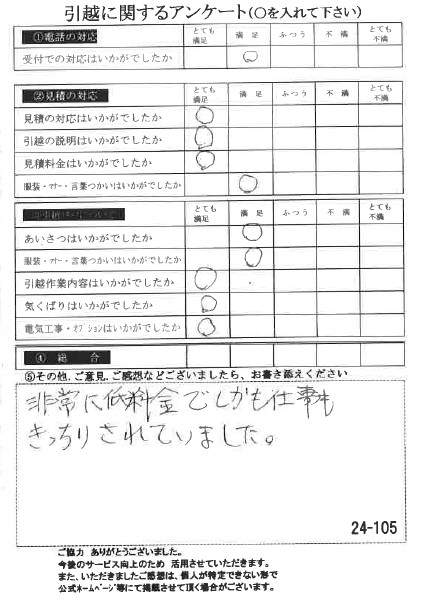 引越に関するアンケート(○を入れて下さい)
①電話の対応 とても満足 満足 ふつう 不満 とても不満
受付での対応はいかがでしたか ○
②見積の対応 とても満足 満足 ふつう 不満 とても不満
見積の対応はいかがでしたか ○
引越の説明はいかがでしたか ○
見積料金はいかがでしたか ○
服装・マナー・言葉つかいはいかがでしたか ○
とても満足 満足 ふつう 不満 とても不満
あいさつはいかがでしたか ○
服装・マナー・言葉つかいはいかがでしたか ○
引越作業内容はいかがでしたか ○
気くばりはいかがでしたか ○
電気工事・オプションはいかがでしたか ○
④ 総 合
⑤その他、ご意見、ご感想などございましたら、お書き添えください
非常に低料金でしかも仕事も
きっちりされていました。
24-105
ご協力 ありがとうございました。
今後のサービス向上のため 活用させていただきます。
また、いただきましたご感想は、個人が特定できない形で
公式ホームページ等にて掲載させて頂く場合がございます。